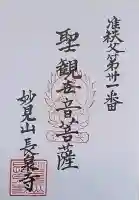 準秩父第卅一番
聖観世音菩薩
妙見山長泉寺